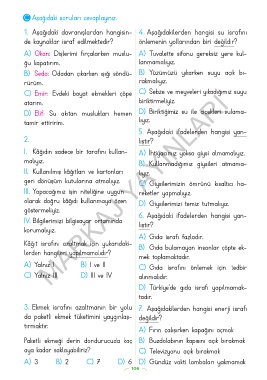 C Aşağıdaki soruları cevaplayınız.
1. Aşağıdaki davranışlardan hangisin-
de kaynaklar israf edilmektedir?
A) Okan: Dişlerimi fırçalarken muslu-
ğu kapatırım.
B) Seda: Odadan çıkarken ışığı söndü-
rürüm.
C) Emir: Evdeki bayat ekmekleri çöpe
atarım.
D) Elif: Su akıtan muslukları hemen
tamir ettiririm.
2.
I. Kâğıdın sadece bir tarafını kullan-
malıyız.
II. Kullanılmış kâğıtları ve kartonları
geri dönüşüm kutularına atmalıyız.
III. Yapacağımız işin niteliğine uygun
olarak doğru kâğıdı kullanmaya özen
göstermeliyiz.
IV. Bilgilerimizi bilgisayar ortamında
korumalıyız.
Kâğıt israfını azaltmak için yukarıdaki-
lerden hangisini yapılmamalıdır?
A) Yalnız I B) I ve II
C) Yalnız III D) III ve IV
3. Ekmek israfını azaltmanın bir yolu
da paketli ekmek tüketimini yaygınlaş-
tırmaktır.
Paketli ekmeği derin dondurucuda kaç
aya kadar saklayabiliriz?
A) 3 B) 2 C) 7 D) 6
4. Aşağıdakilerden hangisi su israfını
önlemenin yollarından biri değildir?
A) Tuvalette sifonu gereksiz yere kul-
lanmamalıyız.
B) Yüzümüzü yıkarken suyu açık bı-
rakmalıyız.
C) Sebze ve meyveleri yıkadığımız suyu
biriktirmeliyiz.
D) Biriktiğimiz su ile çiçekleri sulama-
lıyız.
5. Aşağıdaki ifadelerden hangisi yan-
lıştır?
A) İhtiyacımız yoksa giysi almamalıyız.
B) Kullanmadığımız giysileri atmama-
lıyız.
C) Giysilerimizin ömrünü kısaltıcı ha-
reketler yapmalıyız.
D) Giysilerimizi temiz tutmalıyız.
6. Aşağıdaki ifadelerden hangisi yan-
lıştır?
A) Gıda israfı fazladır.
B) Gıda bulamayan insanlar çöpte ek-
mek toplamaktadır.
C) Gıda israfını önlemek için tedbir
alınmalıdır.
D) Türkiye'de gıda israfı yapılmamak-
tadır.
7. Aşağıdakilerden hangisi enerji israfı
değildir?
A) Fırın çalışırken kapağını açmak
B) Buzdolabının kapısını açık bırakmak
C) Televizyonu açık bırakmak
D) Gündüz vakti lambaları yakmamak